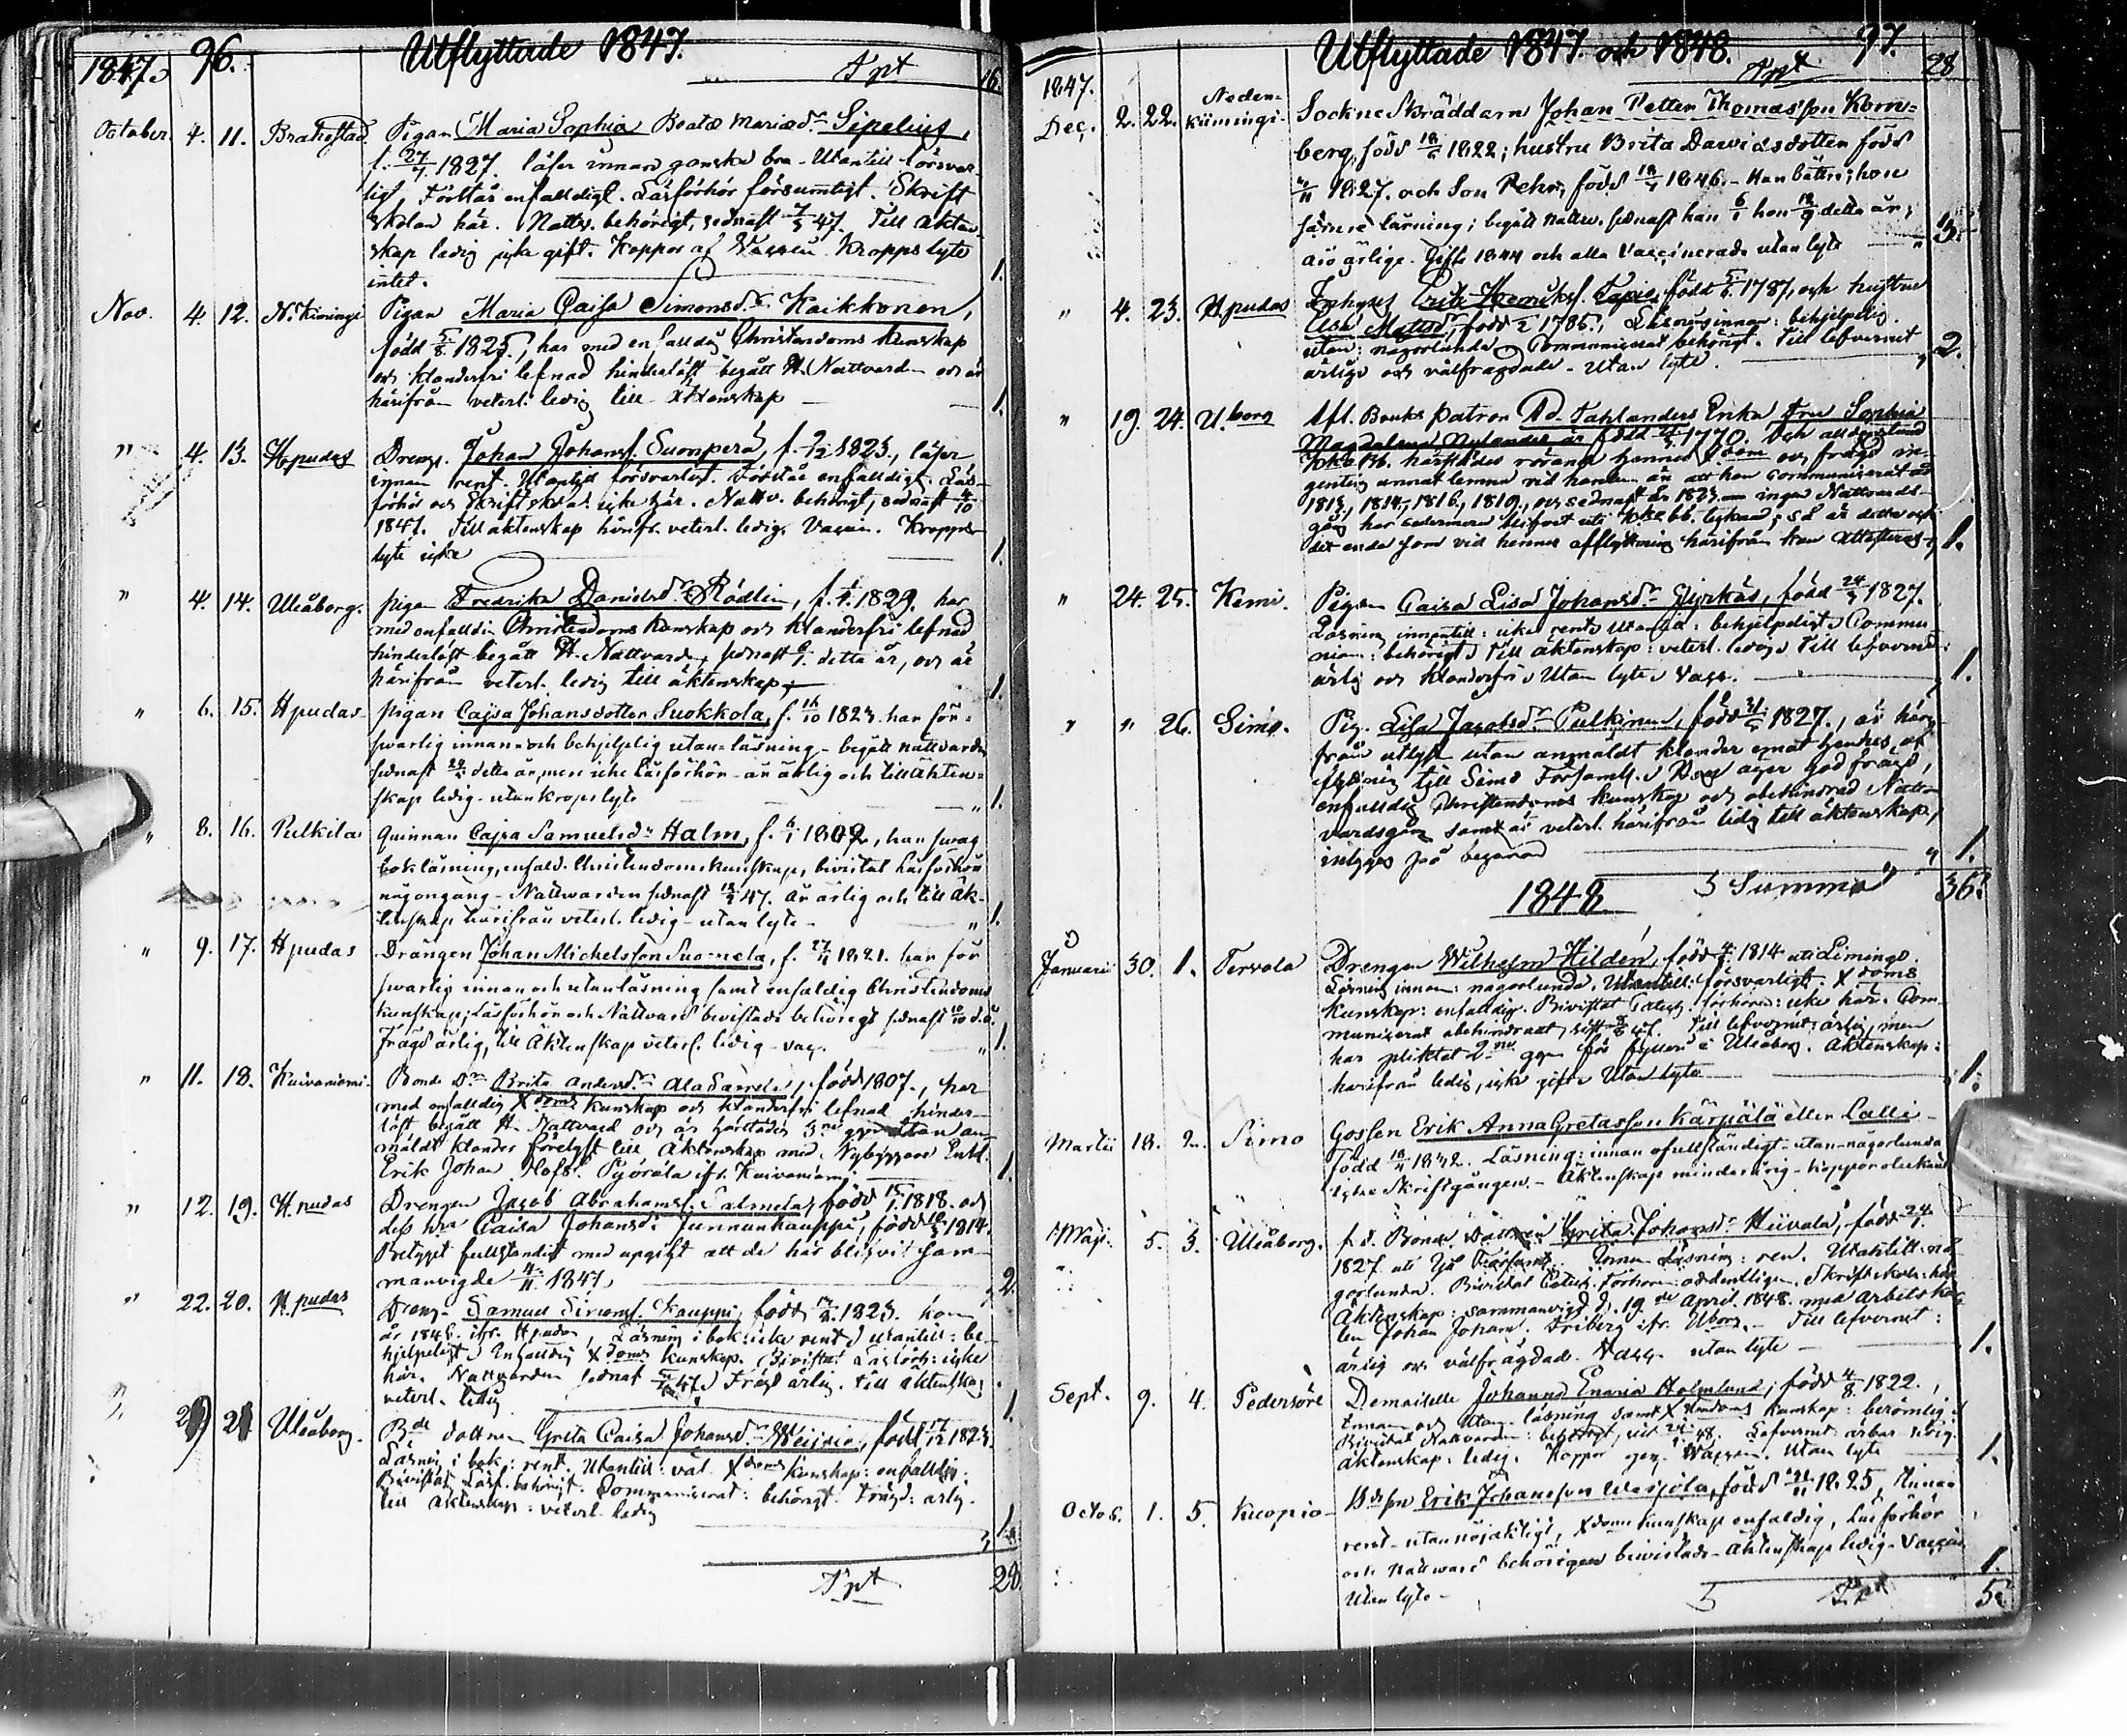 96. Utflyttade 1847.
1847. Tpt 16.
October. 4. 11. Brahestad. Pigan Maria Sophia Beata Mariæ dr Sipelius,
f. 27/7 1827. läser innan ganska bra - Utantill försvar-
ligt, Förstår enfalldigt. Läsförhör försumligt. Skrift
skolan här. Nattv. behörigt, sednast 47. Till äkten-
skap ledig icke gift. Koppor af Vaccin. Kropps lyte
intet. 1.
Nov. 4. 12. N. Kiminge Pigan Maria Caisa Simonsdr Kaikkonen,
född 5/8 1825, har med enfalldig Christendoms kunskap
och klanderfri lefnad hinderlöst begått H. Nattvarden och är
härifrån veterl. ledig till äktenskap 1.
" 4. 13. Hpudas Dreng. Johan Johans. Suomperä, f. 1823, läser
innan rent. Utantill försvarligt. Förstår enfalldigt. Läs-
förhör och Skriftskolan icke här. Nattv. behörigt, sednast
1847. Till äktenskap härifr. veterl. ledig. Vaccin. Kropps-
lyte icke 1.
" 4. 14. Uleåborg. pigan Fredrika Danielsdr Rödlin, f. 1829. har
med enfalldig Christendoms kunskap och klanderfri lefnad
hinderlöst begått H. Nattvarden, sednast detta år, och är
härifrån veterl. ledig till äktenskap 1.
" 6. 15. Hpudas pigan Cajsa Johansdotter Suokkola, f. 16/10 1823. har för-
svarlig innan- och behjelplig utan-läsning - begått nattvarden
sednast detta år, men icke Läsförhör - är ärlig och till äkten-
skap ledig - utan kropslyte " 1.
" 8. 16. Pulkila Quinnan Cajsa Samuelsdr Halm, f. 1802, har svag
bokläsning, enfald. Christendomskunskap, bivistat Läsförhör
någongång - Nattvarden sednast 47. Är ärlig och till äk-
tenskap härifrån veterl. ledig - utan lyte - " 1.
" 9. 17. Hpudas Drängen Johan Michelsson Suomela, f. 27/11 1821. har för
svarlig innan och utanläsning samt enfaldig Christendoms
kunskap, Läsförhör och Nattvard bevistade behörigt sednast 10/10 d.å.
Frägd ärlig, till Äktenskap veterl. ledig - vac. " 1.
" 11. 18. Kuivaniemi. Bonde Dr Brita Andersdr Ala, född 1807, har
med enfalldig Xdoms kunskap och klanderfri lefnad hinder-
löst begått H. Nattvard och är härstädes 3ne ggr utan an-
mäldt klander förelyst till Äktenskap med Nybyggare Enkl.
Erik Johan Olofs. ifr. Kuivaniemi. 1.
" 12. 19. H.pudas Drengen Jacob Abrahams. Salmela, född 1818. och
dess hru Caisa Johansd. Junnunkauppi, född 1814.
Betyget fullständigt med upgift att de här blifvit sam-
manvigde 1847. " 2.
" 22. 20. H.pudas Dreng. Samuel Simons. Kauppi, född 1823. kom
år 1845. ifr. Hpudas, Läsning i bok: icke rent utantill: be-
hjelpeligt Enfalldig Xdoms kunskap. Bivistat Läsförh: icke
här. Nattvarden sednast 47. Frägd ärlig. Till äktenskap
veterl. ledig 1.
29 21 Uleåborg. Bde dottren Greta Caisa Johansdr, född 17/12 1823.
Läsning i bok: rent. Utantill: väl. Xdoms kunskap: enfalldig.
Bivistat Läsf. behörigt. Communicerat: behörigt. Frägd: ärlig.
till äktenskap: veterl. ledig 1.
Tpt 28.
Utflyttade 1847. och 1848. 97.
1847. Tpt 28
Dec. 2. 22. Neden-
kiiminge. Sockne Skräddarn Johan Petter Thomasson Korn-
berg, född 18/6 1822; hustru Brita Davidsdotter född
1827. och Son Pehr, född 1846. - Han bättre; hon
sämre lärning; begått nattv. sednast han 6/6 hon detta år;
äro ärlige. Gifte 1844 och alla Vaccinerade utan lyte " 3.
" 4. 23. H.pudas Inhyses Erik Henriks. Tapio, född 1787, och hustru
Lisa Mattsdr, född 1785, Läsning innan: behjelpelig.
utan: någorlunda Communicerat behörigt. Till lefvernet
ärlige och välfrägdade - Utan lyte. " 2.
" 19. 24. U.borg Afl. Bruks patron Ad. Fahlanders Enka Fru Sophia
Magdalena Nylander är född 1770. Och alldenstund
Kyrko Bk. härstädes rörande hennes Xdom och frägd in-
genting annat lemna vid handen än att hon communicerat år
1813, 1814, 1816, 1819, och sednast år 1823 - ingen Nattvards-
gång har sedermera blifvit uti Kke bk. tecknad; så är detta ock
det enda som vid hennes afflyttning härifrån kan attesteras. 1.
" 24. 25. Kemi. Pigan Caisa Lisa Johansdr, född 24/3 1827.
Läsning innantill: icke rent Utantill: behjelpeligt Commu-
nion: behörigt Till äktenskap: veterl. ledig Till lefvernet:
ärlig och klanderfri Utan lyte Vacc. 1.
" " 26. Simo. Pig. Lisa Jacobsdr Pulkinen, född 1827, är här-
från utlyst utan anmäldt klander emot hennes af
flyttning till Simo Församl. Hon äger god frägd,
enfalldig Christendoms kunskap och obehindrad Natt-
vardsgång samt är veterl. härifrån ledig till äktenskap,
intygas på begäran " 1.
Summa 36.
1848.
Januari 30. 1. Tervola Drengen Wilhelm Hildén, född 1814 uti Limingo.
Läsning innan: någorlunda. Utantill: försvarligt. Xdoms
kunskap: enfalldig. Bivistat Catech. förhören: icke här. Com-
municerat obehindradt, sist 47. Till lefvernet: ärlig, men
har pliktat 2ne ggr för fylleri i Uleåborg. Äktenskap:
härifrån ledig, icke gift Utan lyte 1.
Martii 18. 2. Simo Gossen Erik AnnaGretasson Kärpälä eller Lalli -
född 1832. Läsning: innan ofullständigt - utan någorlunda
icke Skriftgången. - Äktenskap minderårig - koppor obekant
Maji. 5. 3. Uleåborg. f.d. Bonde Dottren Greta Johansdr Hiivala, född 24/1
1827 uti Ijo Församl. Innan Läsning: ren. Utantill: nå-
gorlunda. Bivistat Catech. förhören ordentligen. Skriftskola: här
Äktenskap: sammanvigd d. 19de April 1848. med Arbetskar-
len Johan Johans. Friberg ifr. Uborg. - Till lefvernet:
ärlig och välfrägdad. Vacc. utan lyte 1.
Sept. 9. 4. Pedersöre Demoiselle Johanna Enaria Holmlund, född 4/8 1822.,
Innan och Utan läsning samt Xtendoms kunskap: berömlig.
Bivistat Nattvarden: behörigt, sist 48. Lefvernet: ärbar, sedig.
äktenskap: ledig. Koppor egen. Vaccin. Utan lyte 1.
Octob. 1. 5. Kuopio - Bdson Erik Johansson, född 1825, Innan
rent - utan nöjaktigt, Xdoms kunskap enfaldig, Läsförhör
och Nattvard behörigen bevistade - Äktenskap ledig - Vaccin,
Utan lyte - 1.
Tpt 5.